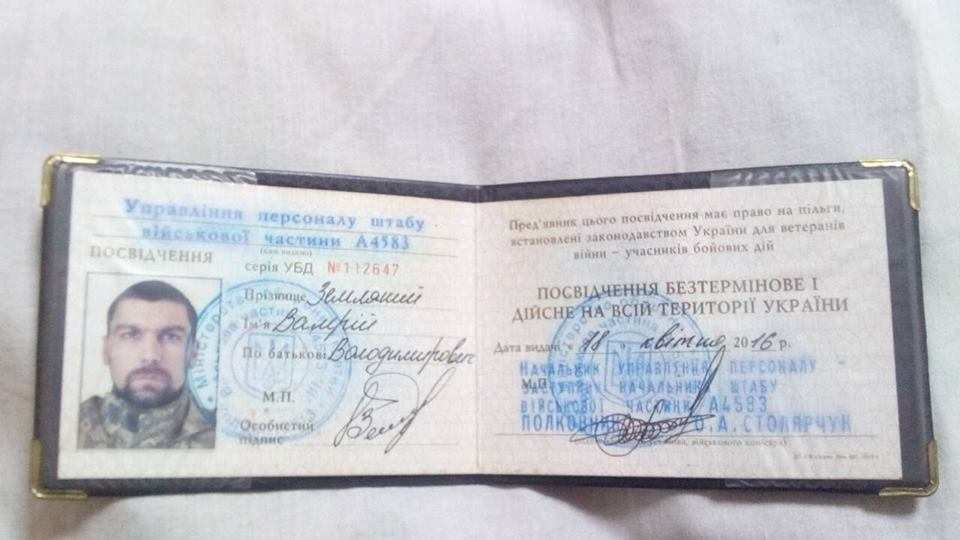 Управління персоналу штабу
військової частини А4583
ПОСВІДЧЕННЯ
серія УБД №112647
Прізвище Земляний
Ім'я Валерій
По батькові Володимирович
М.П.
Особистий
підпис
Пред'явник цього посвідчення має право на пільги,
встановлені законодавством України для ветеранів
війни – учасників бойових дій
ПОСВІДЧЕННЯ БЕЗТЕРМІНОВЕ І
ДІЙСНЕ НА ВСІЙ ТЕРИТОРІЇ УКРАЇНИ
Дата видачі 18 квітня 2016 р.
НАЧАЛЬНИК УПРАВЛІННЯ ПЕРСОНАЛУ -
М.П.
ЗАСТУПНИК НАЧАЛЬНИКА ШТАБУ
ВІЙСЬКОВОЇ ЧАСТИНИ А4583
ПОЛКОВНИК О.А.СТОЛЯРЧУК